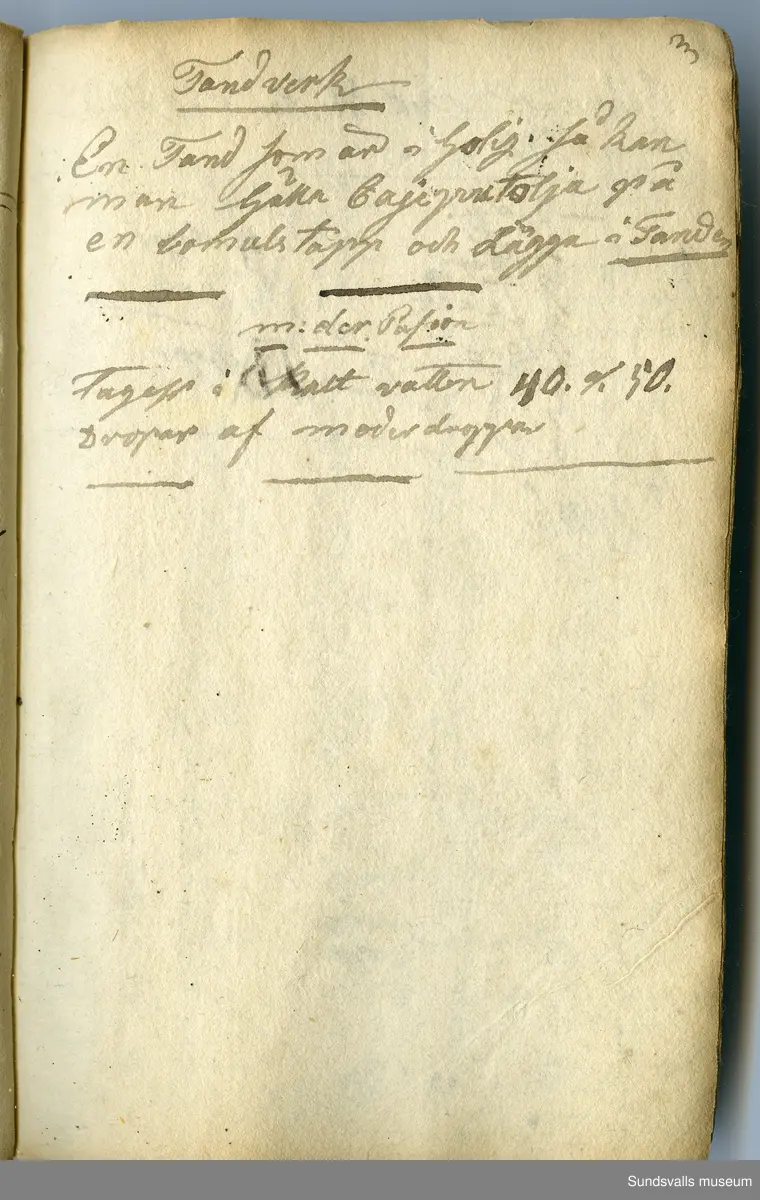 3
Tandverk
En Tand som är i holig. så kan
man hälla Cajeputolja på
en bomuls tapp och Lägga i Tanden
m:der. Pasion
Tages i Kalt vatten 40. a. 50.
Dropar af moderdroppar
Sundsvalls museum